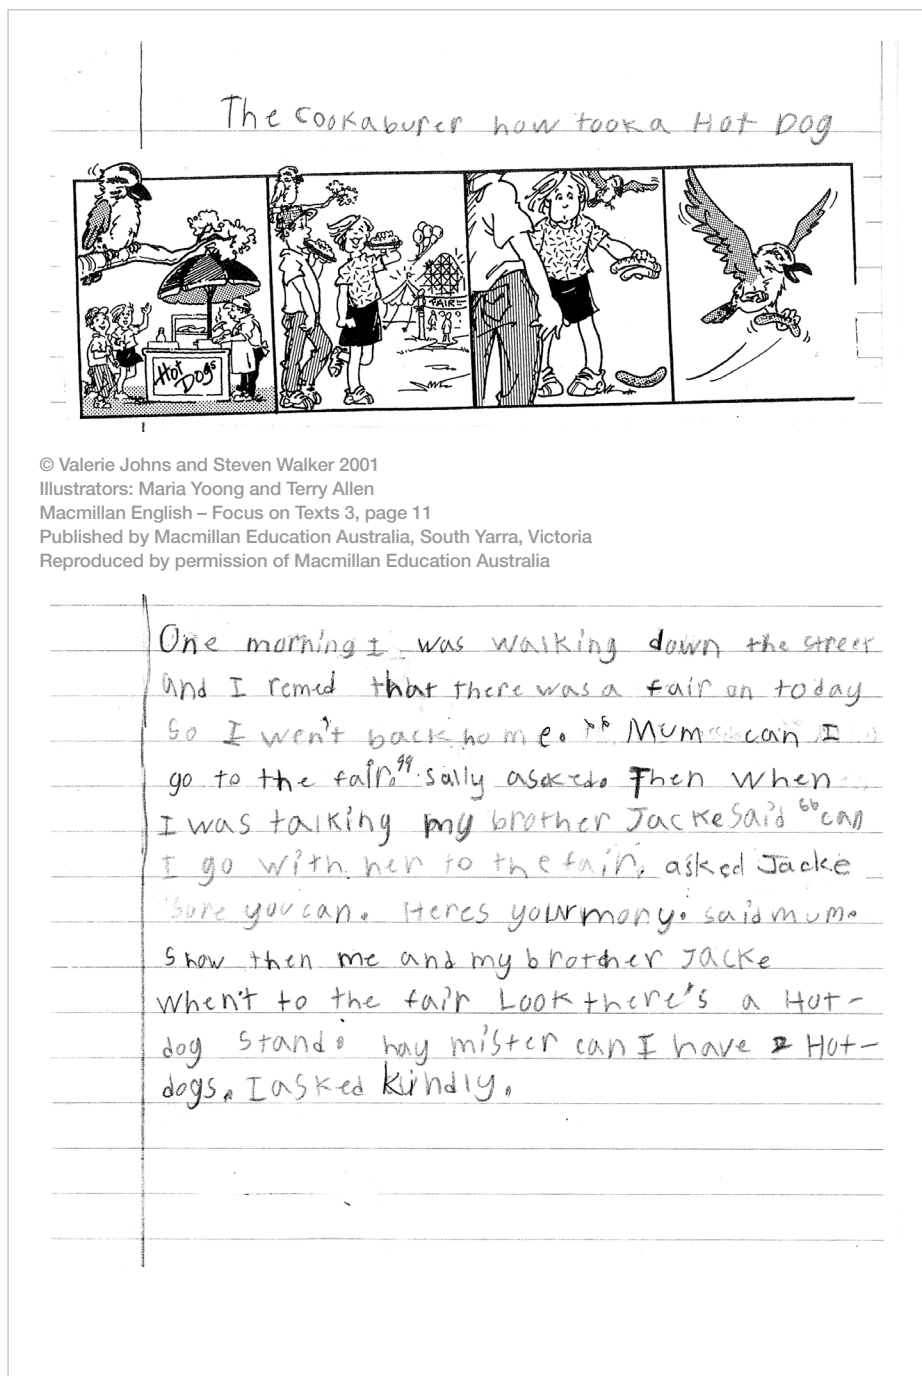 The cookaburer how took a Hot Dog
Hot Dogs
FAIR
© Valerie Johns and Steven Walker 2001
Illustrators: Maria Yoong and Terry Allen
Macmillan English – Focus on Texts 3, page 11
Published by Macmillan Education Australia, South Yarra, Victoria
Reproduced by permission of Macmillan Education Australia
One morning I was walking down the street
and I remed that there was a fair on today
So I wen't back home. “ Mum can I
go to the fair.” sally asked. Then when
I was talking my brother Jacke Said “can
I go with her to the fair. asked Jacke
Sure you can. Heres your mony. said mum.
Show then me and my brother Jacke
when't to the fair Look there's a Hot-
dog stand. hay mister can I have 2 Hot-
dogs. I asked kindly.